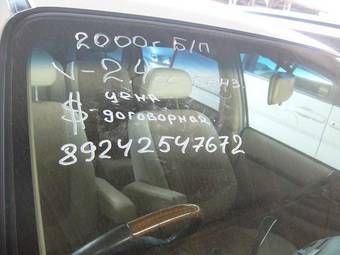 2000г Б/П
V-2.4
цена
$-договорная
89242547672